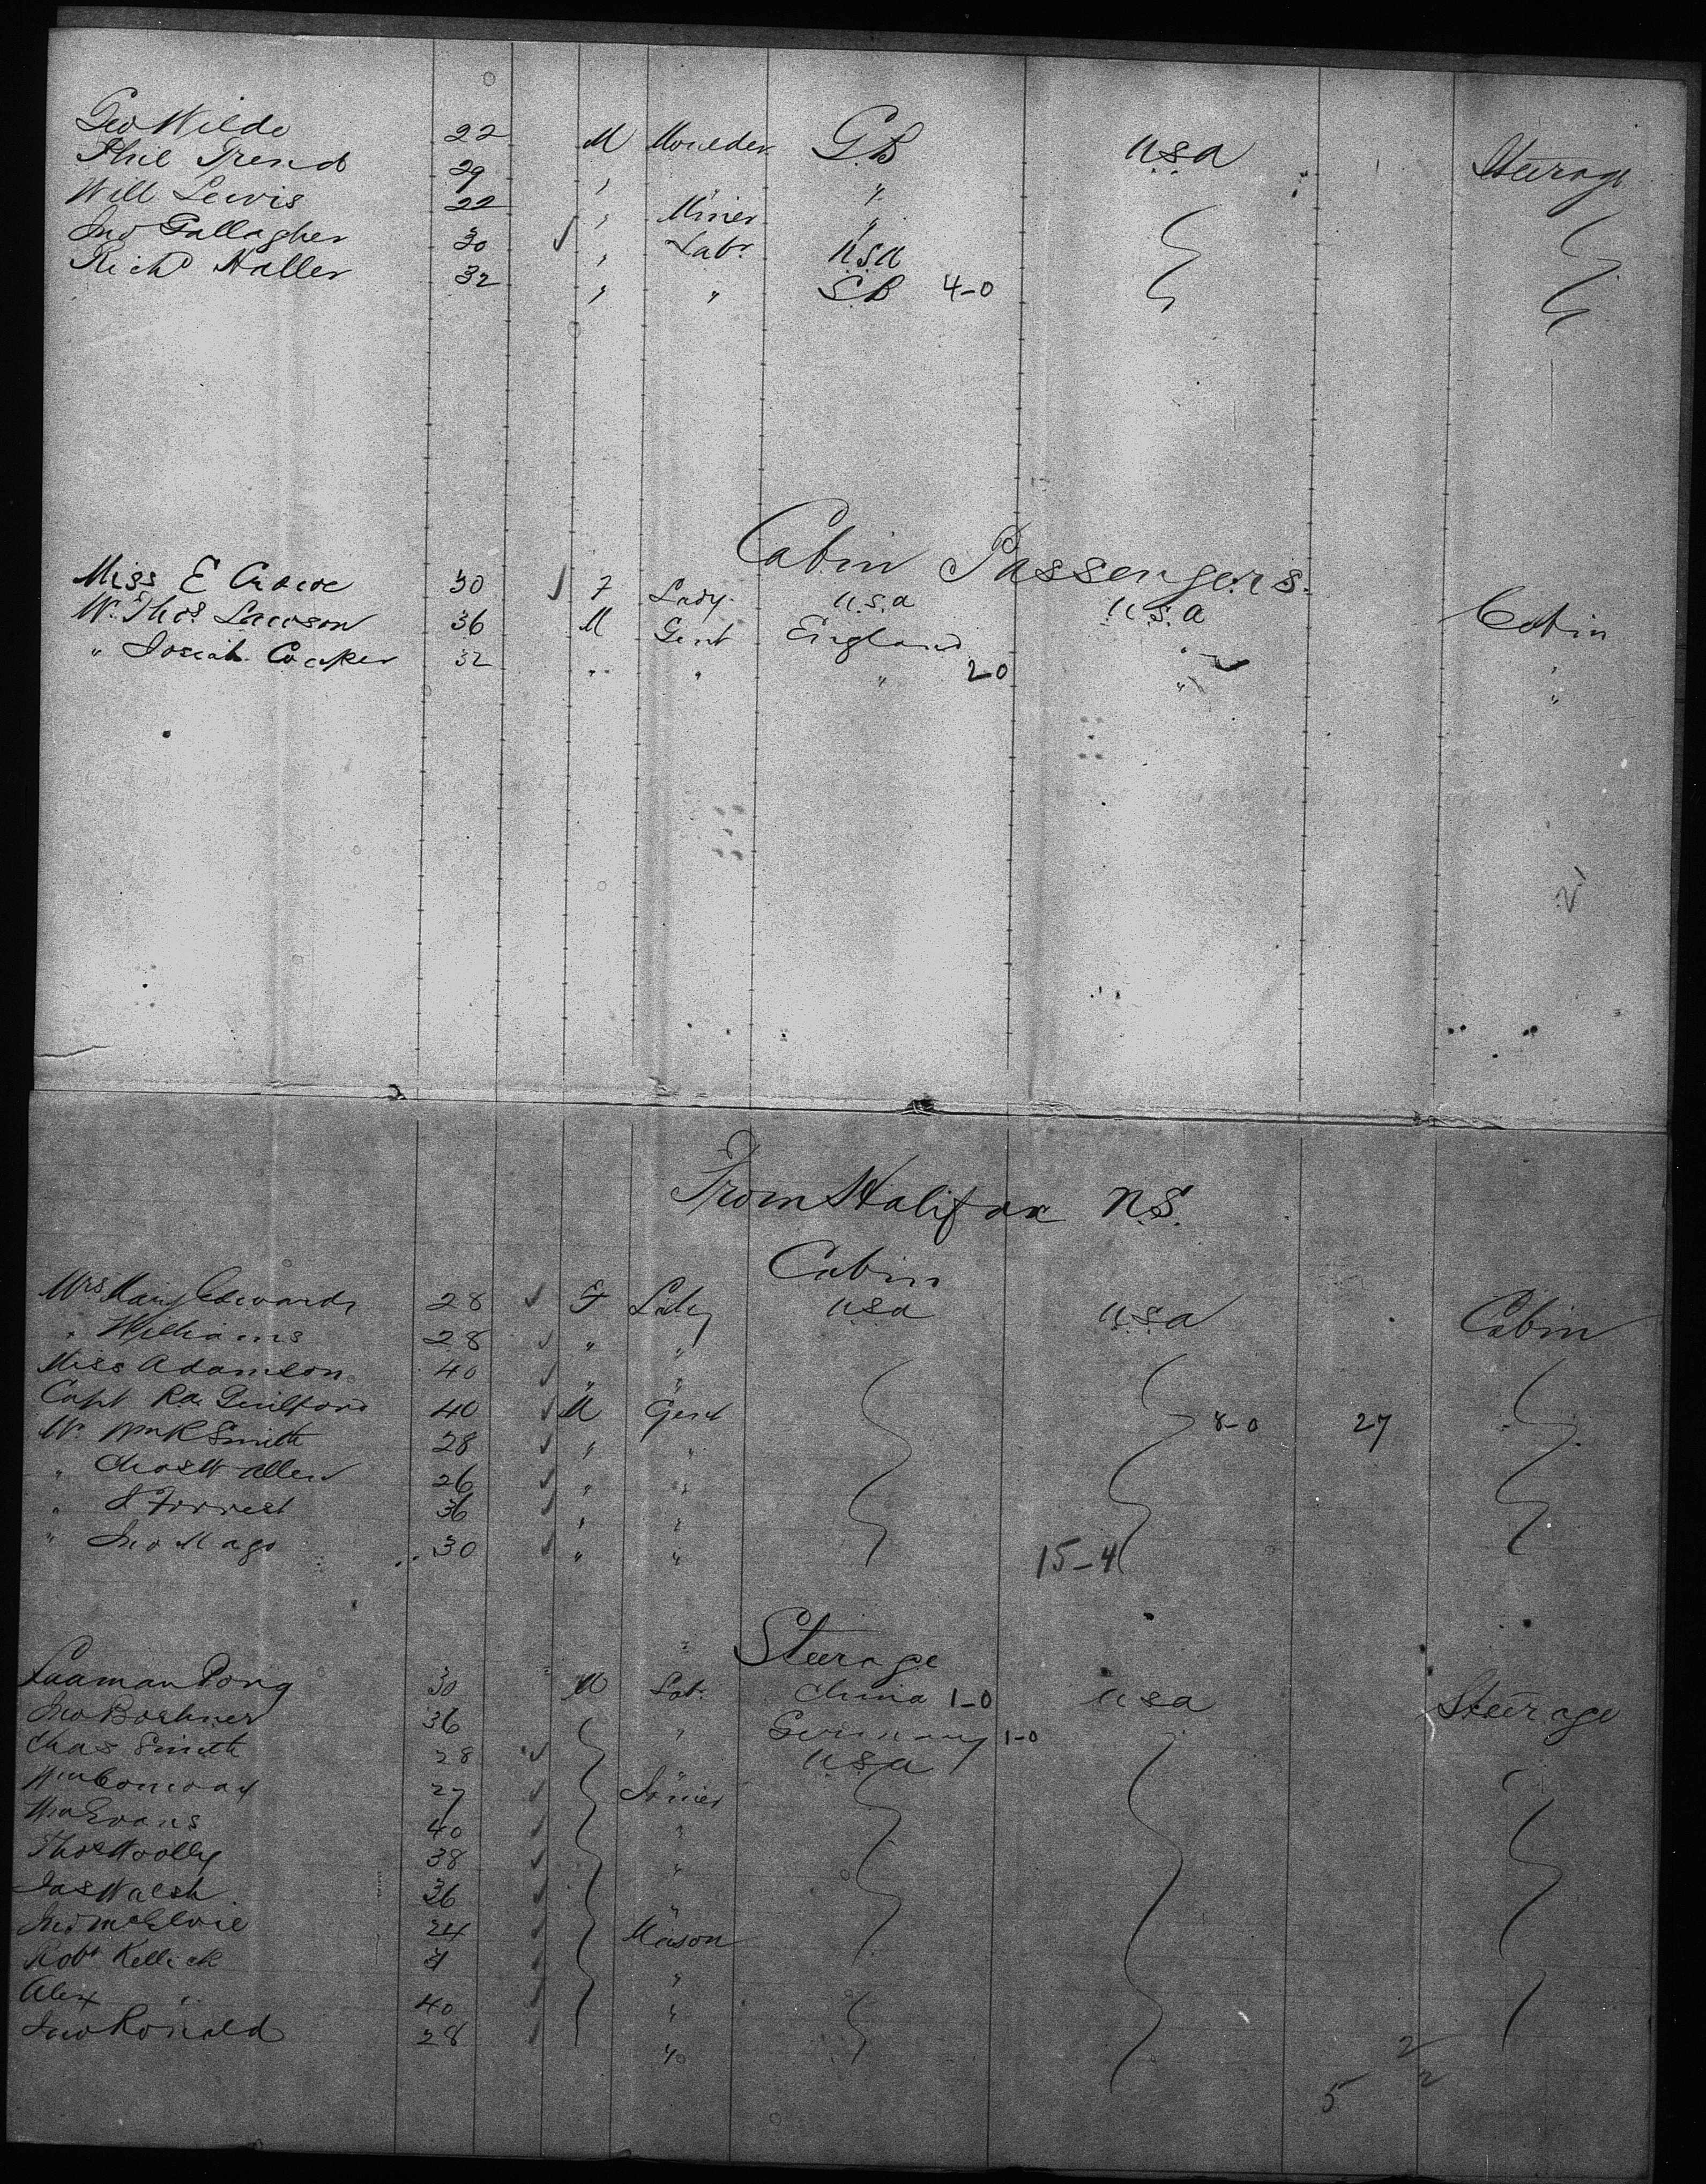 Geo Wilde 22 M Moulder G.B U.S.A Steerage
Phil Trend 29 " " "
Will Lewis 22 " Miner "
Jno Gallagher 30 ✓ " Labr. U.S.A
Richd Haller 32 " " G.B 4-0
Cabin Passengers.
Miss E Crowe 30 ✓ F Lady. U.S.A U.S.A Cabin
Mr. Thos Lawson 36 M Gent England " "
" Josiah Cocker 32 " " " 2-0 " "
From Halifax N.S.
Cabin
Mrs Mary Edwards 28 ✓ F Lady U.S.A U.S.A Cabin
" Williams 28 ✓ " "
Miss Adamson 40 ✓ " "
Capt Guilford 40 ✓ M Gent 8-0 27
Mr. Wm R Smith 28 ✓ " "
" Chas W Allen 26 ✓ " "
" Forrest 36 ✓ " "
" Jno Mago 30 ✓ " " 15-4
Steerage
Pong 30 M Lab. China 1-0 U.S.A Steerage
Jno Boehner 36 " Germany 1-0
Chas Smith 28 ✓ " U.S.A
Wm 27 ✓
Wm Evans 40 ✓ "
Thos Woolly 38 ✓ "
Jas Walsh 36 ✓ "
Jno 24 ✓ Mason
Robt Kellick ✓ "
Alex " 40 ✓ "
Jno Ronald 28 ✓ "
2
5 2